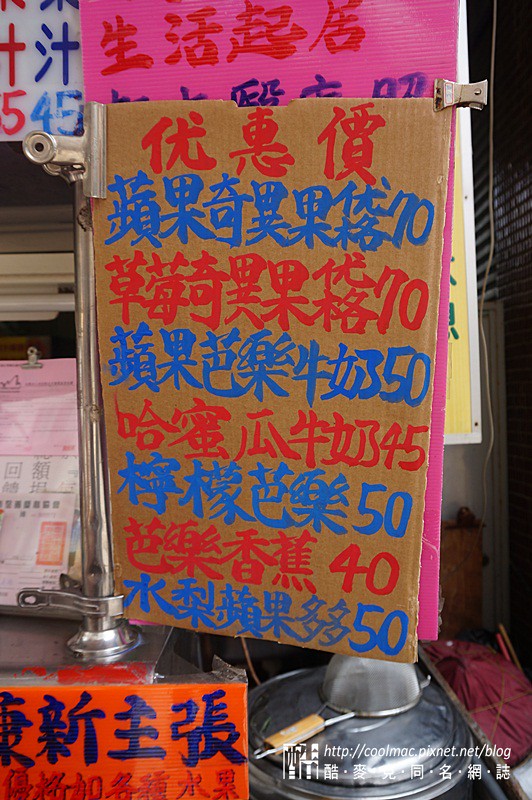 生活起居
汁 汁
35 45
优惠價
蘋果奇異果袋70
草莓奇異果袋70
蘋果芭樂牛奶50
哈蜜瓜牛奶45
檸檬芭樂50
芭樂香蕉 40
水梨蘋果多多50
兼新主張
優格加各種水果
http://coolmac.pixnet.net/blog
酷‧麥‧克‧同‧名‧網‧誌